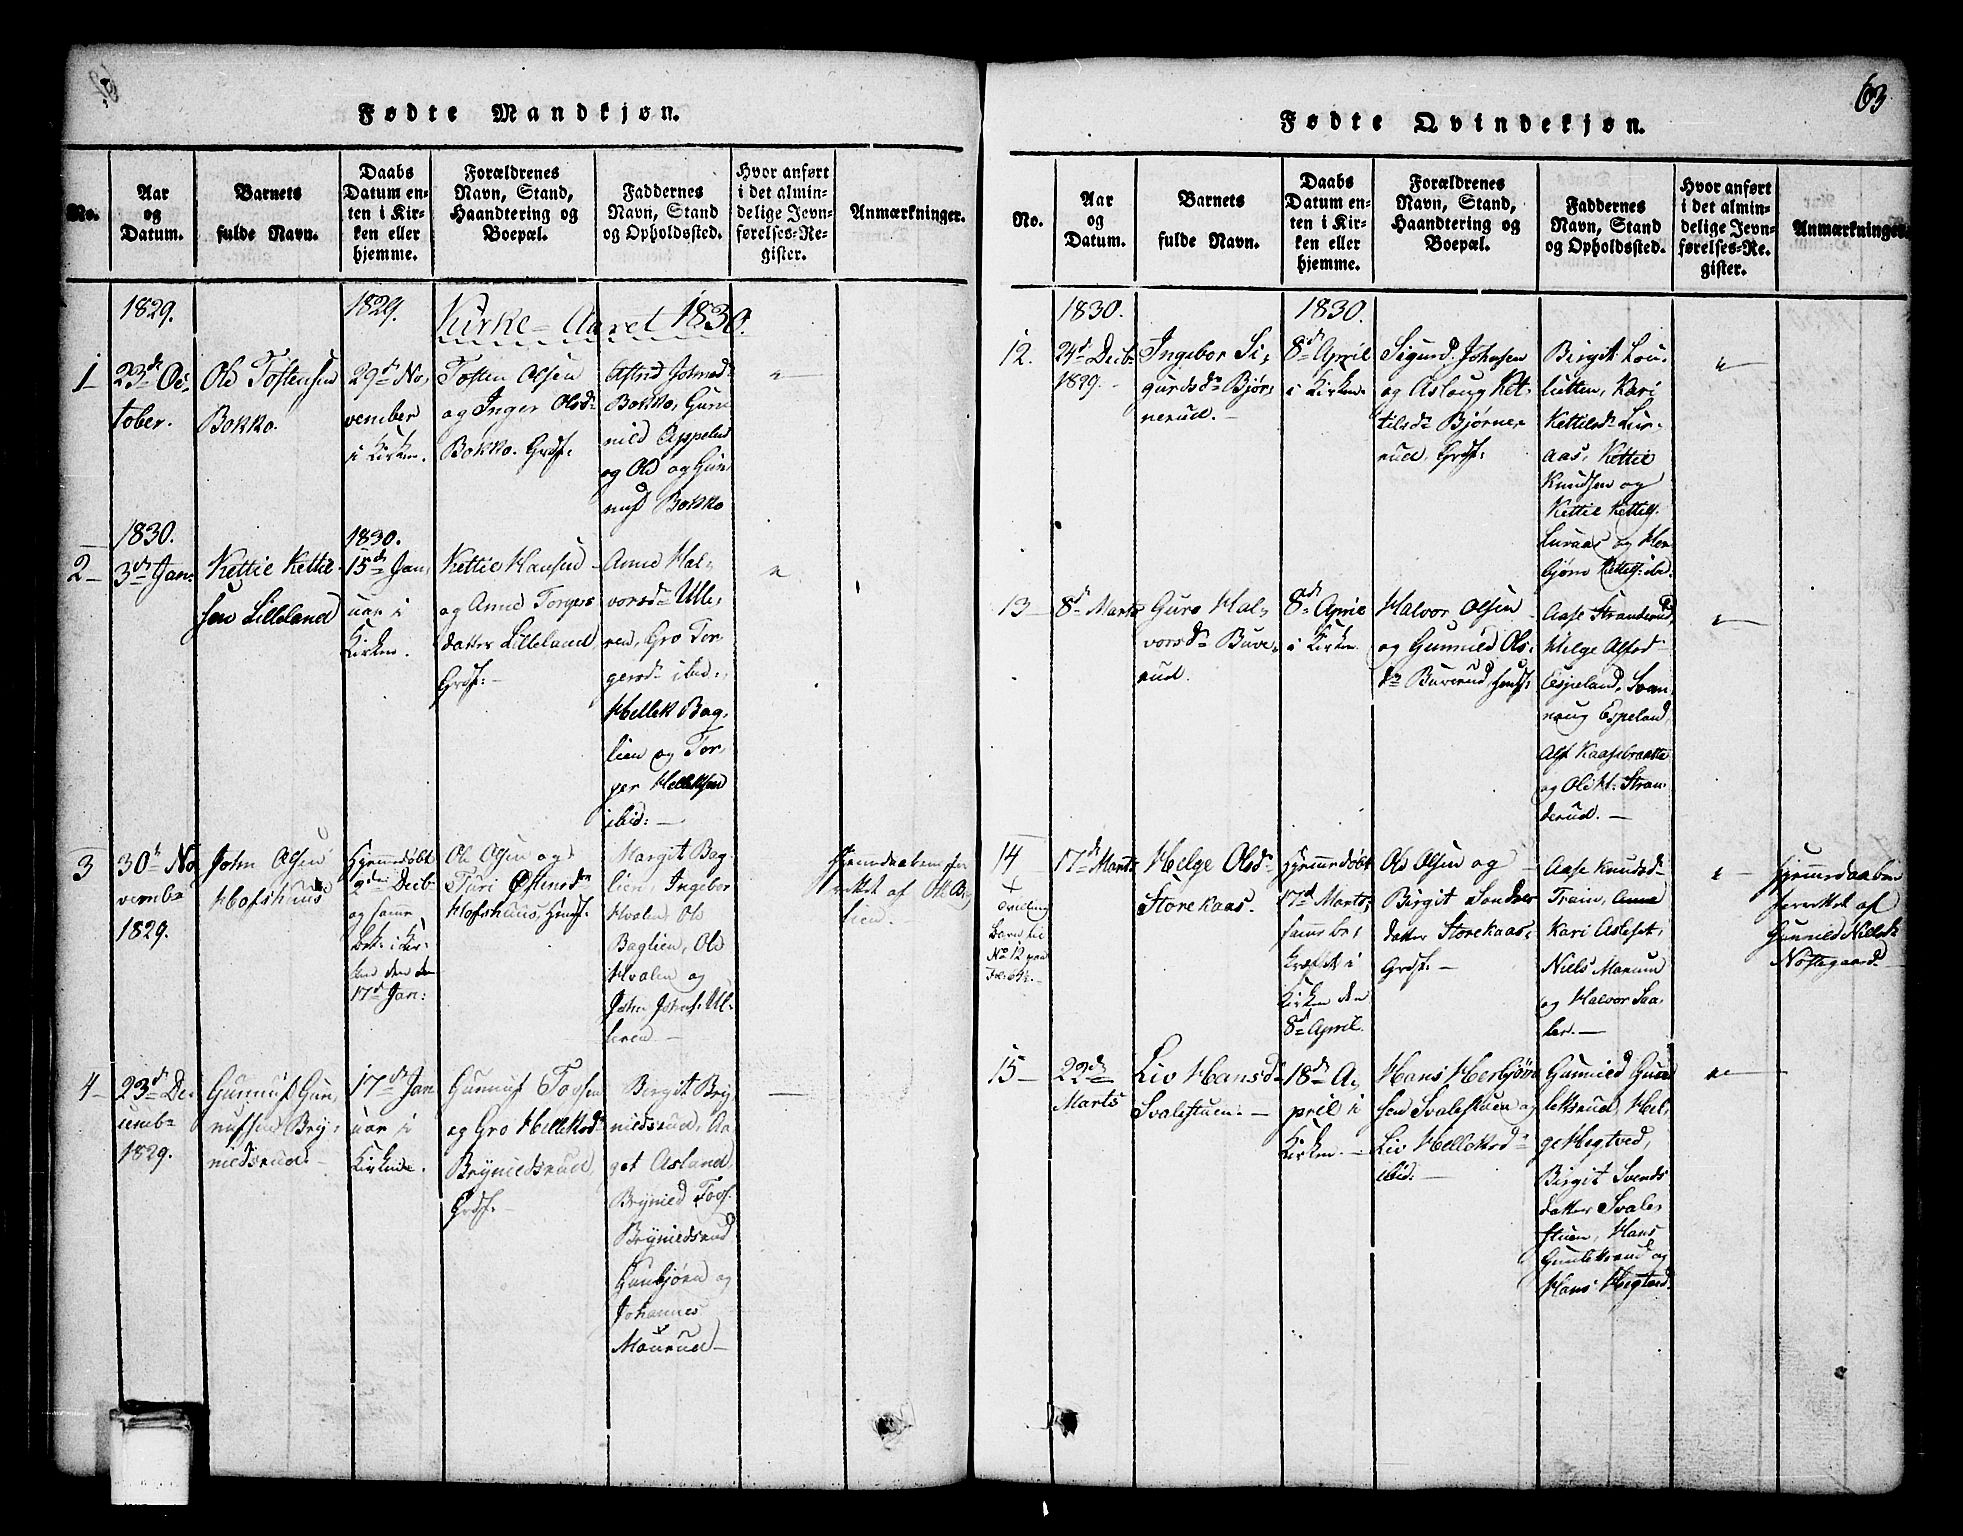 Fødte Mandkjøn.
No.
Aar
og
Datum.
Barnets
fulde Navn.
Daabs
Datum en-
ten i Kir-
ken eller
hjemme.
Forældrenes
Navn, Stand,
Haandtering og
Boepæl.
Faddernes
Navn, Stand
og Opholdssted.
Hvor anført
i det almin-
delige Jevn-
førelses-Re-
gister.
Anmærkninger.
1829.
1829.
Kirke-Aaret 1830.
1
23d Oc-
tober.
Ole Tostensen
Bokko.
29d No-
vember
i Kirken.
Tosten Olsen
og Inger Olsdr
Bokko. Grdf:
Bokko, Gun-
nild Appelud
og Ole og Gun-
nuf Bokko
1830.
1830.
2
3d Jan.
Kettil Kettil-
sen Lilleland
15d Jan-
uar i
Kirken.
Kettil Hansen
og Anne Torgers
datter Lilleland
Grdf:
Anne Hal-
vorsdr Ulle-
ren, Gro Tor-
gersdr ibid.,
Hellek Bag-
lien og Tor-
ger Helleksen
ibid:
3
30t No-
vembr
1829.
John Olsen
Hofshuus
Hjemmedøbt
2den Decb
og
i Kir-
ken den
17d Jan:
Ole Olsen og
Turi Østensdr
Hofshuus,
Margit Bag-
lien, Ingebor
Hvalen, Ole
Baglien, Ole
Hvalen og
John Johns. Ul-
leren
af Ole
lien.
4
23d De-
cembr
1829.
Gunnuf Gun-
nufsen Bry-
nildsrud.
17d Jan
uar i
Kirken.
Gunnuf Tovsen
og Gro Helleksdr
Brynildsrud,
Grdf:
Birgit Bry-
nildsrud, Aa-
get Asland,
Brynild Tovs.
Brynildsrud
Gunbjørn og
Johannes
Maurud
63
Fødte Qvindekjøn.
No.
Aar
og
Datum.
Barnets
fulde Navn.
Daabs
Datum en-
ten i Kir-
ken eller
hjemme.
Forældrenes
Navn, Stand,
Haandtering og
Boepæl.
Faddernes
Navn, Stand
og Opholdssted.
Hvor anført
i det almin-
delige Jevn-
førelses-Re-
gister.
Anmærkninger.
1830.
1830.
12.
24d Decb
1829.
Ingebor Si-
gurdsdr Bjør-
nerud.
8d April
i Kirken.
Sigurd Johnsen
og Aslaug Ket-
tilsdr Bjørne-
rud, Grdf:
Birgit Lou-
lutten, Kari
Kettilsdr Lur-
aas, Kettil
Knudsen og
Kettil Kettils.
Luraas og Her-
bjørn Kettils. ibid.
13
8d Marts
Guro Hal-
vorsdr Buve-
rud.
8d April
i Kirken.
Halvor Olsen
og Gunnild Ols-
dr Buverud,
Aase Stranderud,
Helge Alfsdr
Espeland, Svan-
noug Espeland,
Alf Kaasebrække
og Ole K: Stran-
derud.
14
Tvilling
Barn til
No 12 paa
17d Marts
Helge Olsdr
Storekaas.
Hjemmedøbt
17d Marts,
i
Kirken den
8d April.
Ole Olsen og
Birgit Sondres
datter Storekaas,
Grdf:
Aase Knudsdr
Traim, Anne
Kari Asleset,
Niels Marum
og Halvor Saa-
ler.
Hjemmedaaben
forrettet af
Gunnild Nielsdr
Nostegaard
15
22d
Marts
Liv Hansdr
Svalestuen.
18d A-
pril i
Kirken.
Hans Herbjørn
sen Svalestuen og
Liv Helleksdr
ibid:
Gunnild Gun-
leksrud, Hel-
ge Hegtved,
Birgit Svends
datter Svale-
stuen, Hans
Gunleksrud og
Hans Hegtved.